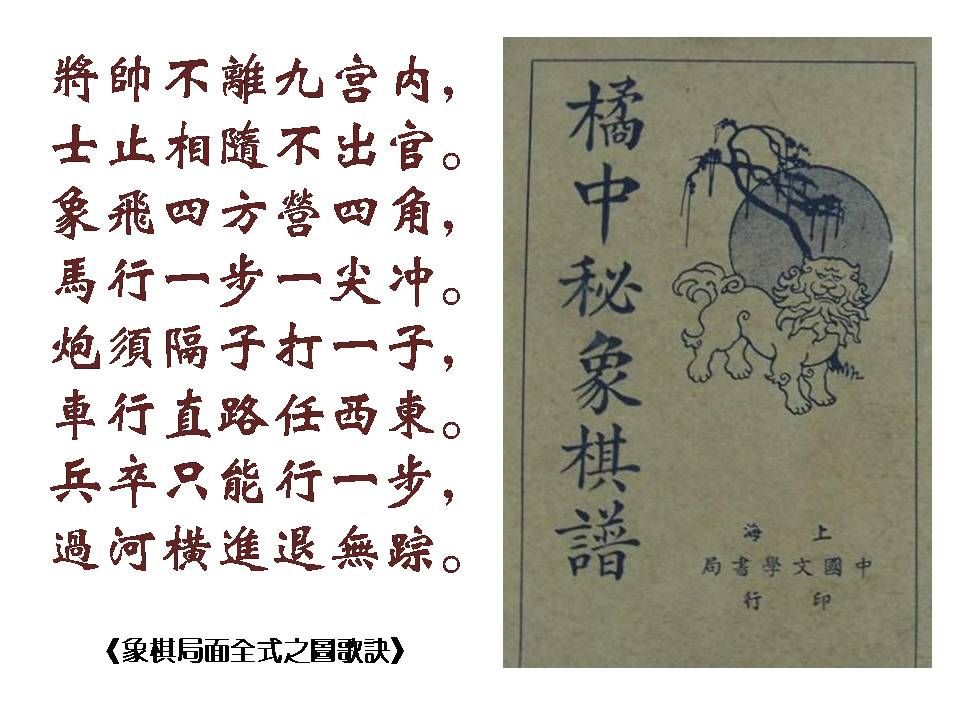 將帥不離九宮内，
士止相隨不出官。
象飛四方營四角，
馬行一步一尖冲。
炮須隔子打一子，
車行直路任西東。
兵卒只能行一步，
過河橫進退無踪。
《象棋局面全式之圖歌訣》
橘中秘象棋譜
上海
中國文學書局
印行